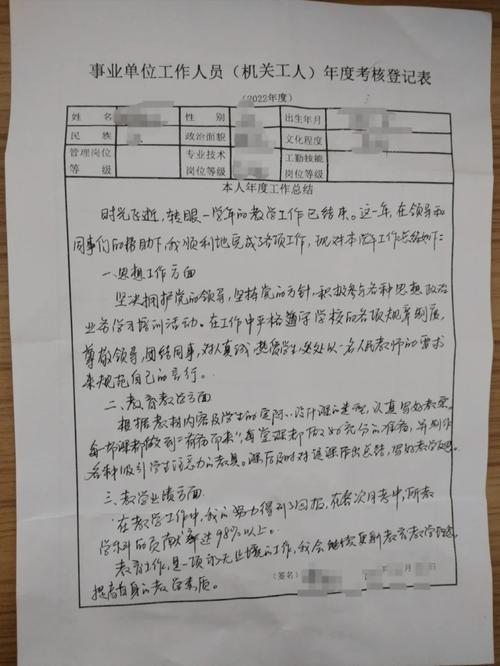 事业单位工作人员（机关工人）年度考核登记表
（2022年度）
姓名 性别 出生年月
民族 政治面貌 文化程度
管理岗位等级 专业技术岗位等级 工勤技能岗位等级
本人年度工作总结
时光飞逝，转眼一学年的教学工作已结束。这一年，在领导和
同事们的帮助下，我顺利地完成了各项工作，现对本学年工作总结如下：
一.思想工作方面
坚决拥护党的领导，坚持党的方针，积极参与各种思想政治
业务学习培训活动。在工作中严格遵守学校的各项规章制度，
尊敬领导，团结同事，对人真诚，热爱学生，处处以一名人民教师的要求
来规范自己的言行。
二.教育教学方面
根据教材内容及学生的实际，设计课的类型，认真写好教案。
每一节课都做到"有备而来"，每堂课都做好充分的准备，并制作
各种吸引学生注意力的教具。课后及时对该课作出总结，写好教学反思。
三.教学业绩方面
在教学工作中，我的努力得到了回报，在各次月考中，所教
学科的贡献率达98%以上。
教育工作，是一项永无止境的工作，我会继续更新教育教学理念，
提高自身的教学素质。
（签名） 年 月 日